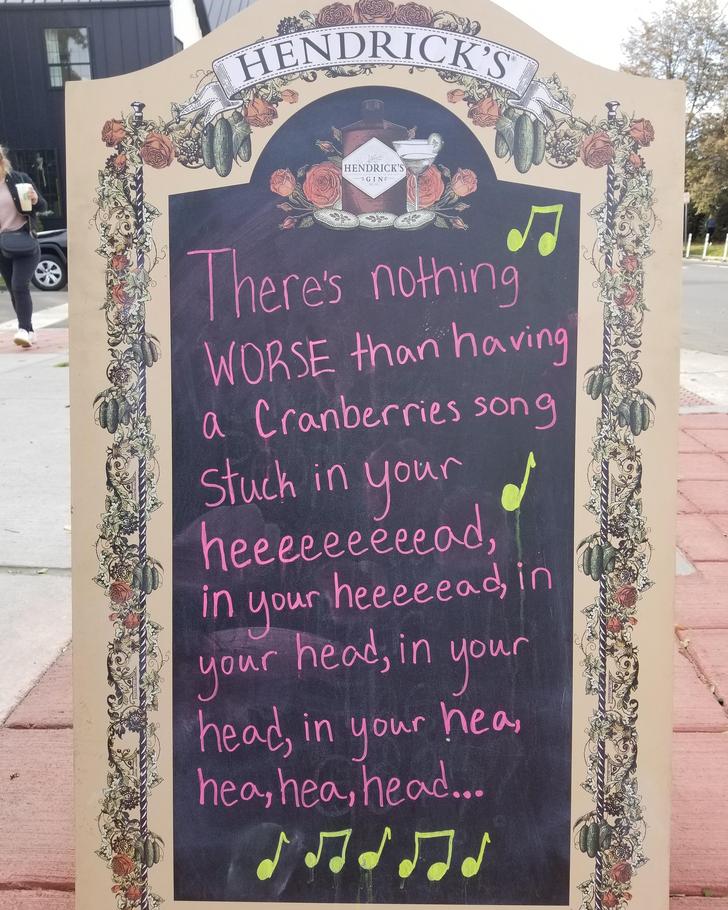 HENDRICK'S
HENDRICK'S
GIN
There's nothing
WORSE than having
a Cranberries song
Stuck in your
heeeeeeeeead,
in your heeeeead, in
your head, in your
head, in your hea,
hea, hea, head...